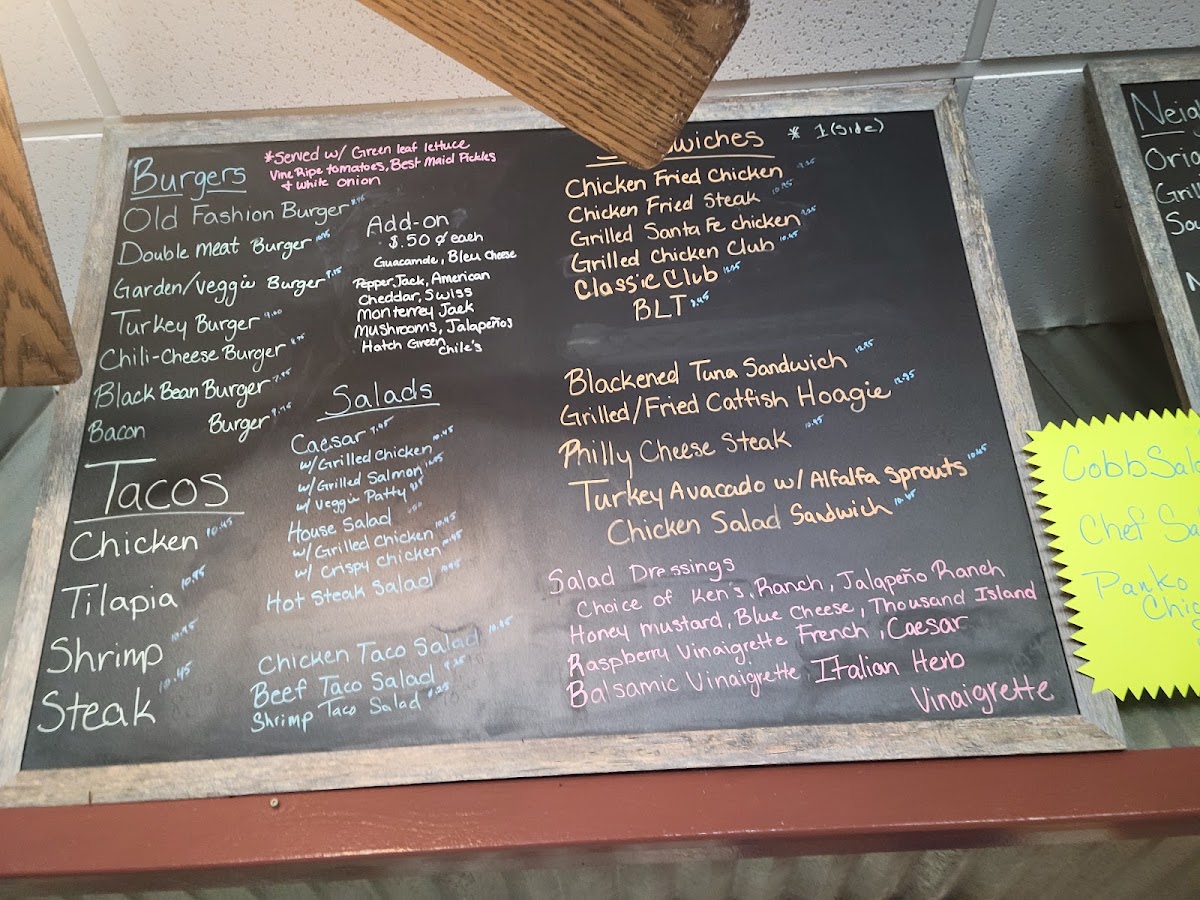 Burgers
*Served w/ Green leaf lettuce
Vine Ripe tomatoes, Best Maid Pickles
& white onion
Old Fashion Burger
Double meat Burger 10.95
Garden/veggie Burger
Turkey Burger
Chili-Cheese Burger
Black Bean Burger
Bacon Burger
Add-on
$.50 ¢ each
Guacamole, Bleu Cheese
Pepper Jack, American
Cheddar, Swiss
Monterrey Jack
Mushrooms, Jalapeños
Hatch Green Chile's
Tacos
Chicken 10.45
Tilapia 10.95
Shrimp 10.95
Steak 10.45
Salads
Caesar
w/ Grilled Chicken 10.45
w/ Grilled Salmon
w/ Veggie Patty
House Salad
w/ Grilled Chicken 10.45
w/ Crispy Chicken 10.45
Hot Steak Salad 10.45
Chicken Taco Salad 10.45
Beef Taco Salad
Shrimp Taco Salad
wiches * 1 (side)
Chicken Fried Chicken
Chicken Fried Steak 10.95
Grilled Santa Fe chicken
Grilled Chicken Club 10.45
Classic Club
BLT
Blackened Tuna Sandwich 12.95
Grilled/Fried Catfish Hoagie 12.95
Philly Cheese Steak 10.95
Turkey Avacado w/ Alfalfa Sprouts 10.45
Chicken Salad Sandwich 10.45
Salad Dressings
Choice of Ken's, Ranch, Jalapeño Ranch
Honey mustard, Blue Cheese, Thousand Island
Raspberry Vinaigrette French, Caesar
Balsamic Vinaigrette, Italian Herb
Vinaigrette
Cobb Sala
Chef Sa
Panko